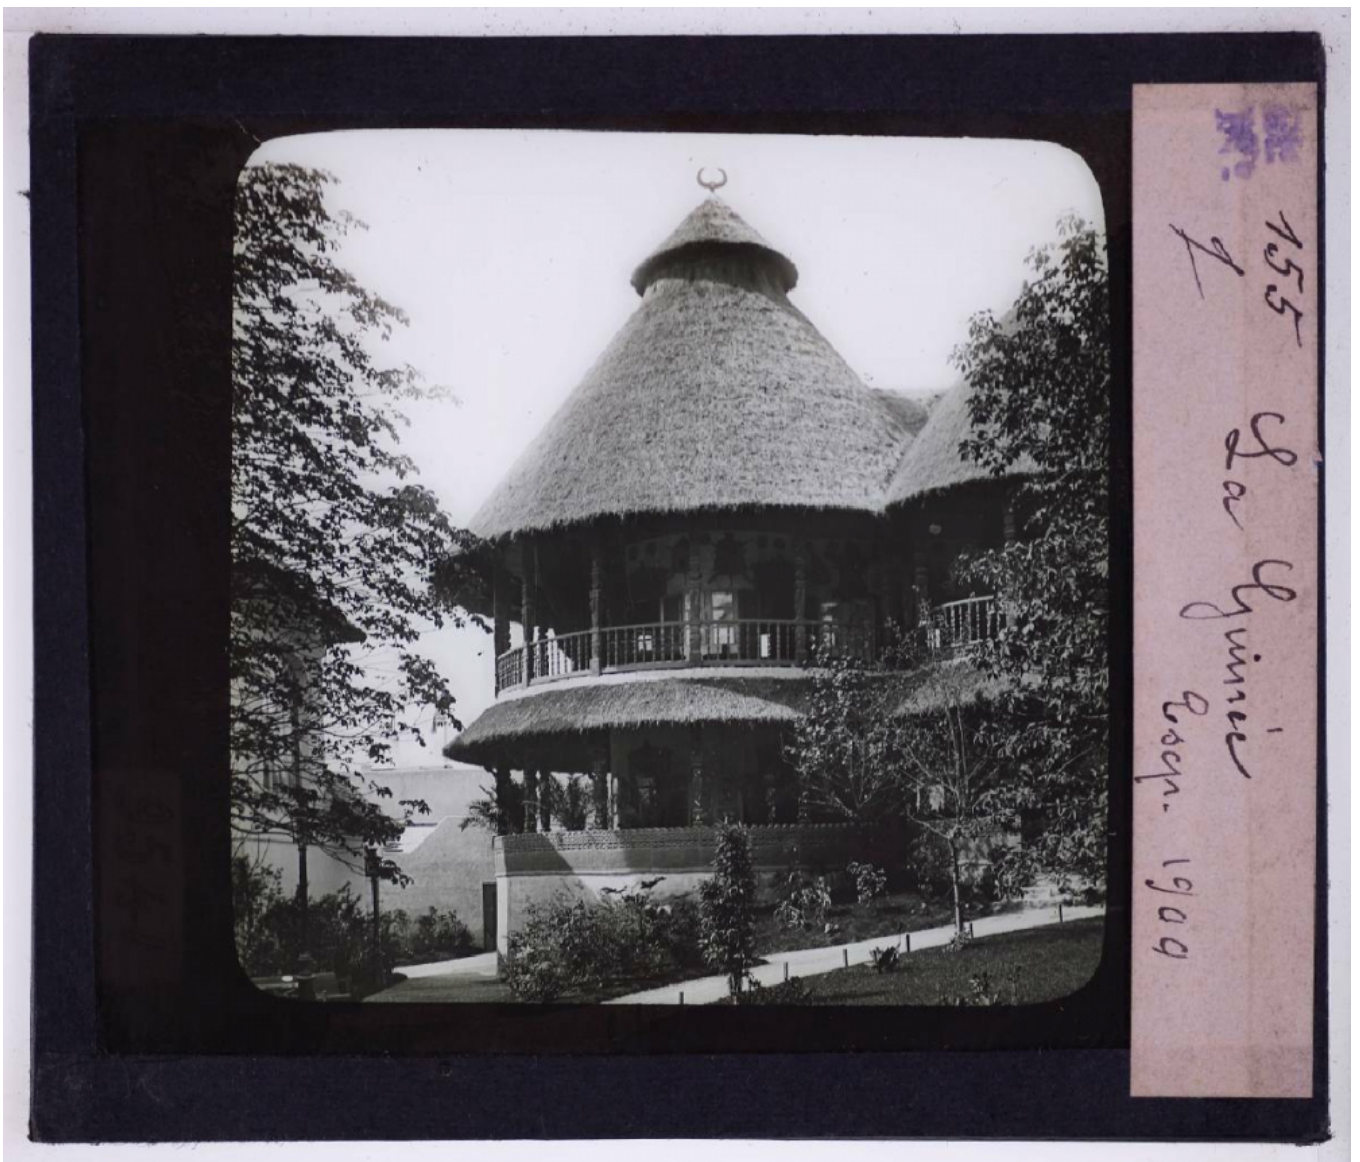 155 La Guinée
Exp. 1900